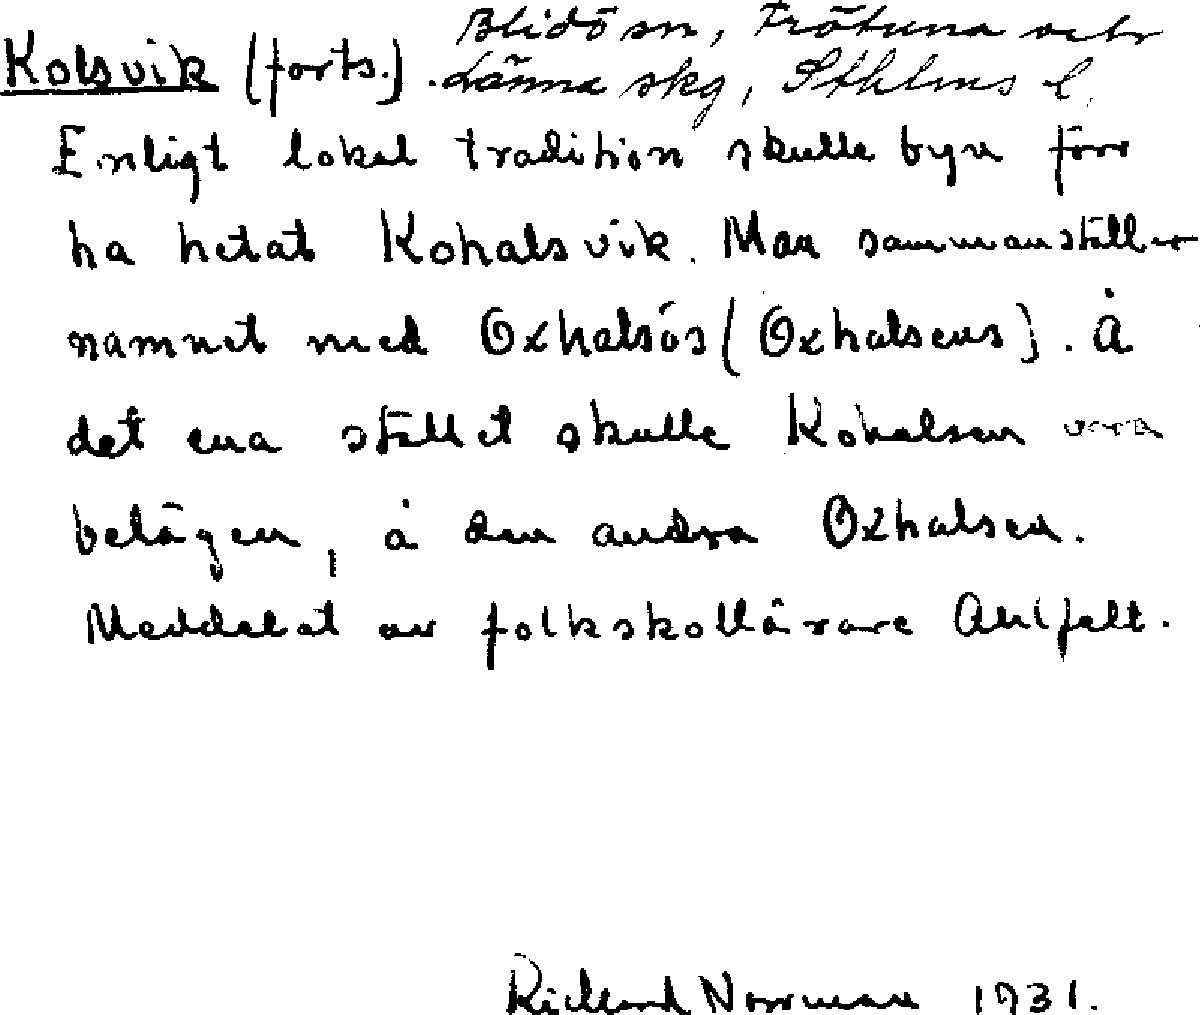 Blidö sn, Frötuna och
Kolsvik (forts.). Länna skg, Sthlms l.
Enligt lokal tradition skulle byn förr
ha hetat Kohalsvik. Man sammanställer
namnet med Oxhalsös (Oxhalsens). Å
det ena stället skulle Kohalsen vara
belägen, å den andra Oxhalsen.
Meddelat av folkskollärare Ahlfelt.
Rickard Norrman 1931.